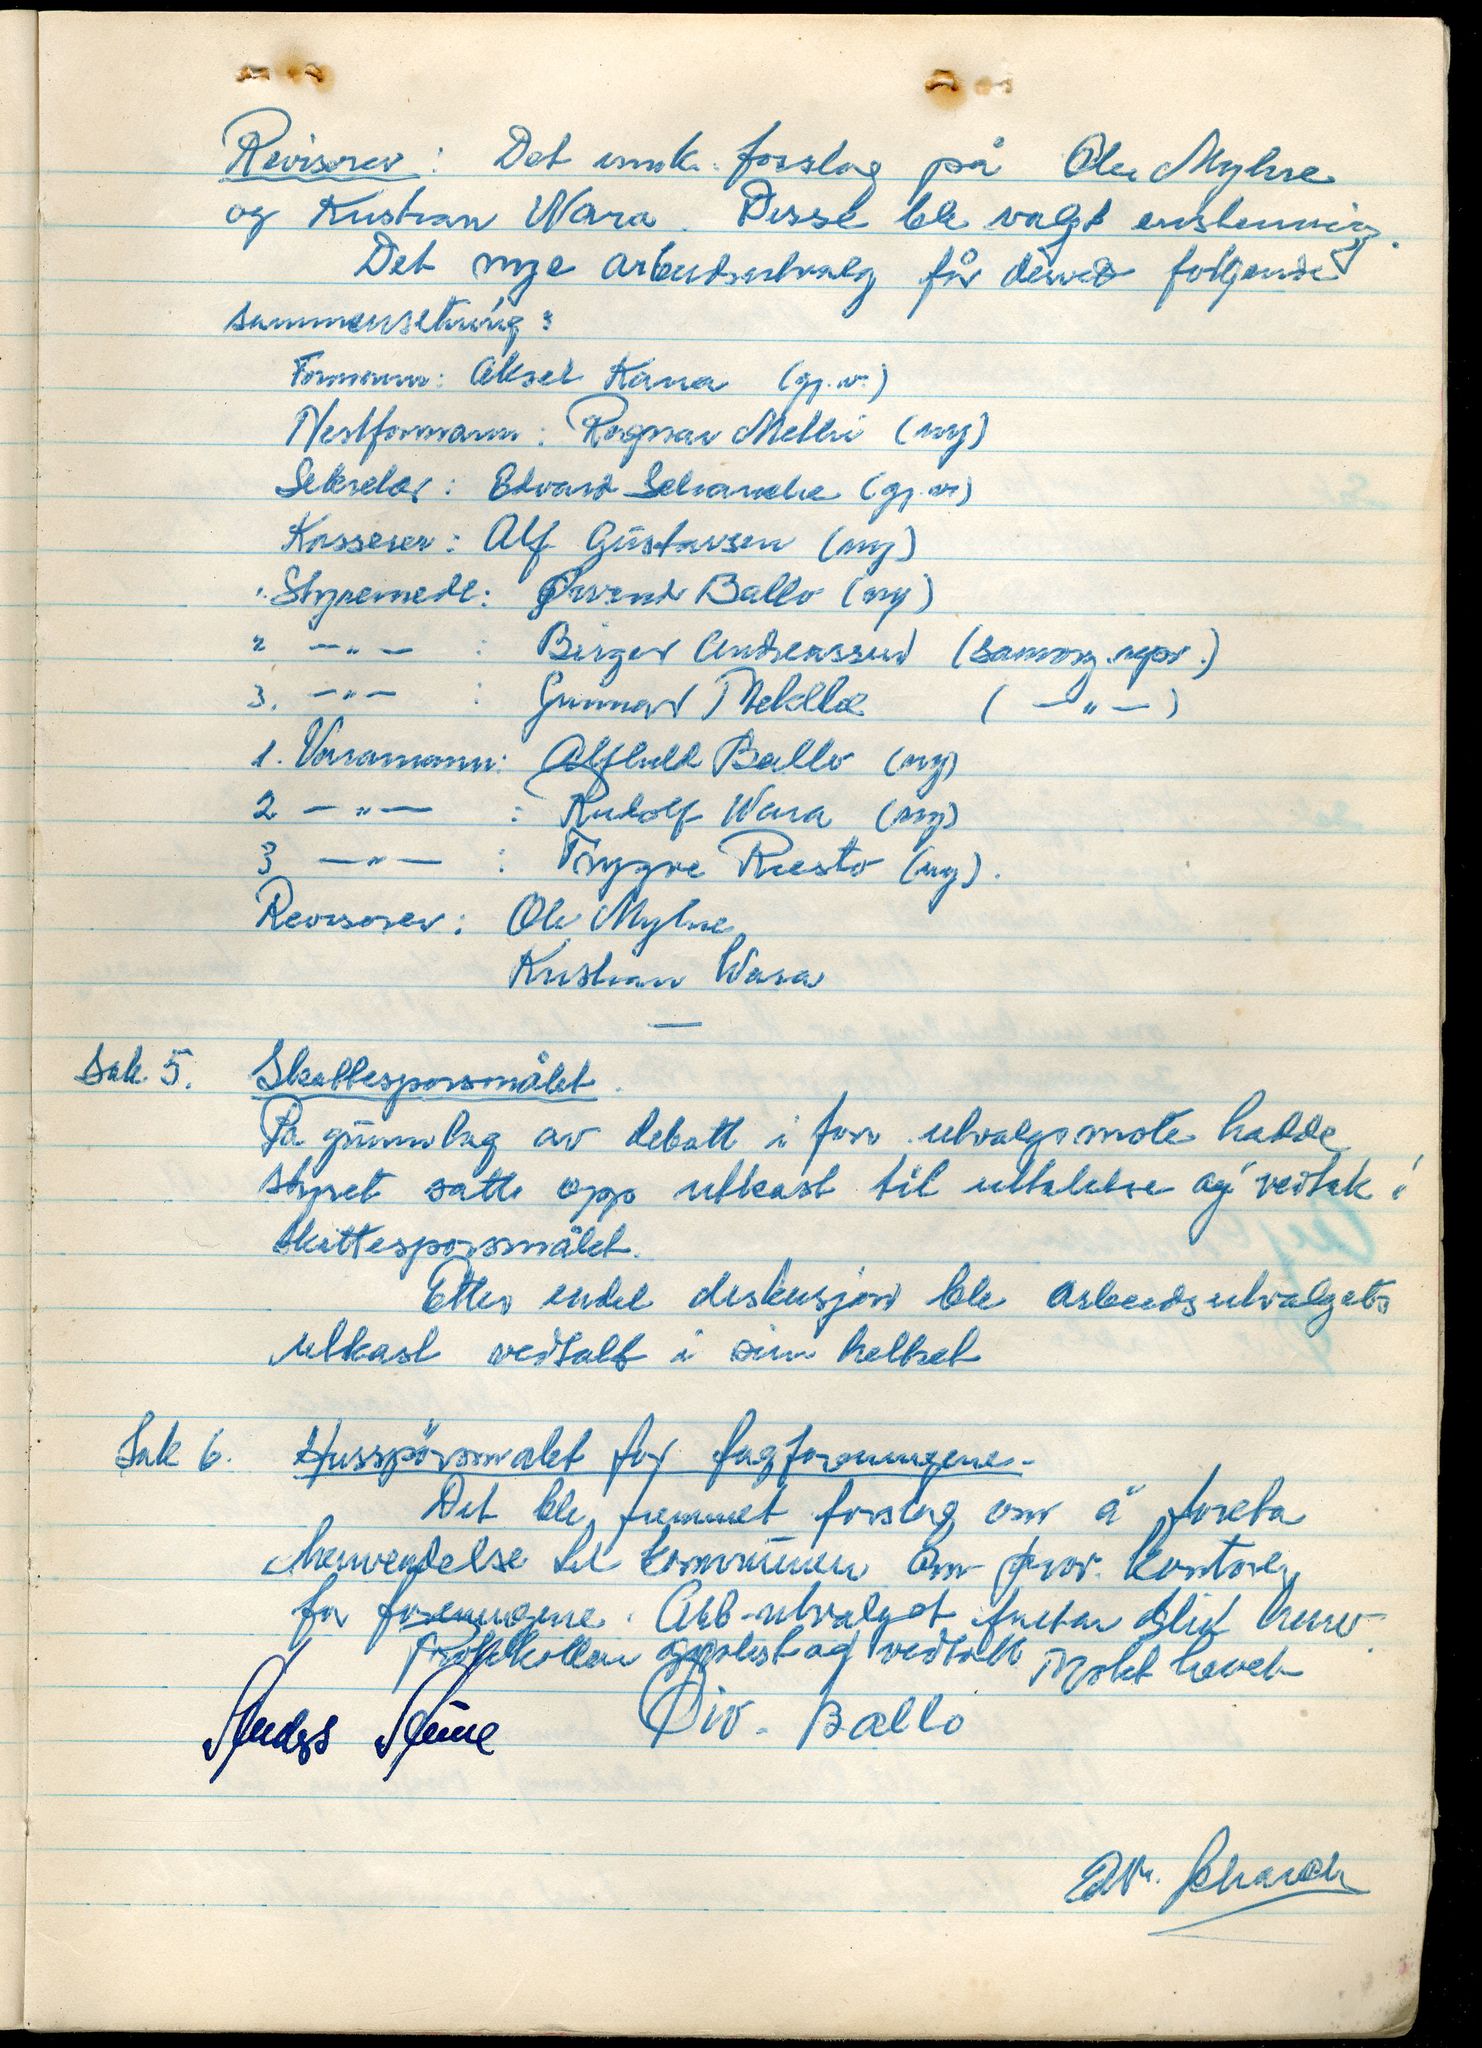 Revisorer: Det innk. forslag på Ole Myhre
og Kristian Wara. Disse ble valgt enstemmig.
Det nye arbeidsutvalg får derved følgende
sammensetning:
Formann: Aksel Kana (gj.v.)
Nestformann: Ragnar Methi (ny)
Sekretær: Edvard Schanche (gj.v.)
Kasserer: Alf Gustavsen (ny)
1. Styremedl: Ørvend Ballo (ny)
2 — " — : Birger Andreassen (samorg. repr.)
3. — " — : Gunnar (— " —)
1. Varamann: Alfhild Ballo (ny)
2 — " — : Rudolf Wara (ny)
3 — " — : Trygve Riesto (ny).
Revisorer: Ole Myhre
Kristian Wara
—
Sak 5. Skattespørsmålet.
På grunnlag av debatt i forr. utvalgsmøte hadde
styret satt opp utkast til uttalelse og vedtak i
skattespørsmålet.
Etter endel diskusjon ble arbeidsutvalgets
utkast vedtatt i sin helhet
Sak 6. Husspörsmalet for fagforeningene.
Det ble fremmet forslag om å foreta
henvendelse til kommunen om prov. kontorer
for foreningene. Arb-utvalget foretar slik henv.
Protokollen opplest og vedtatt Møtet hevet
Øiv. Ballo
Edv. Schanch